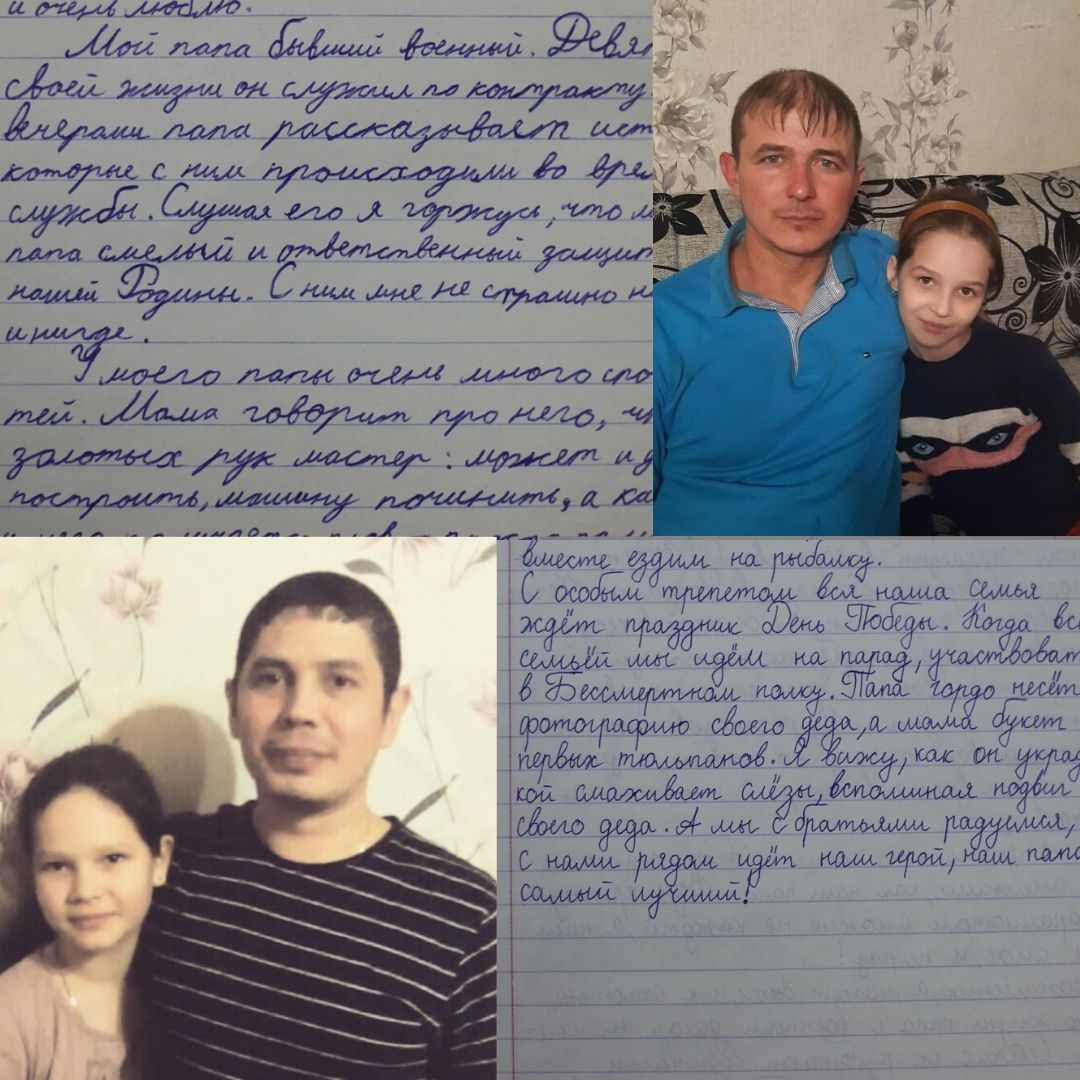 и очень люблю.
Мой папа бывший военный. Девят
своей жизни он служил по контракту.
вечерами папа рассказывает ист
которые с ним происходили во врем
службы. Слушая его я горжусь, что м
папа смелый и ответственный защит
нашей Родины. С ним мне не страшно н
и нигде.
У моего папы очень много спо
тей. Мама говорит про него, ч
золотых рук мастер: может и д
построить, машину починить, а ка
вместе ездим на рыбалку.
С особым трепетом вся наша семья
ждёт праздник День Победы. Когда все
семьёй мы идём на парад, участвоват
в Бессмертном полку. Папа гордо несёт
фотографию своего деда, а мама букет
первых тюльпанов. Я вижу, как он украд
кой смахивает слёзы, вспоминая подвиг
своего деда. А мы с братьями радуемся,
с нами рядом идёт наш герой, наш папа
самый лучший!